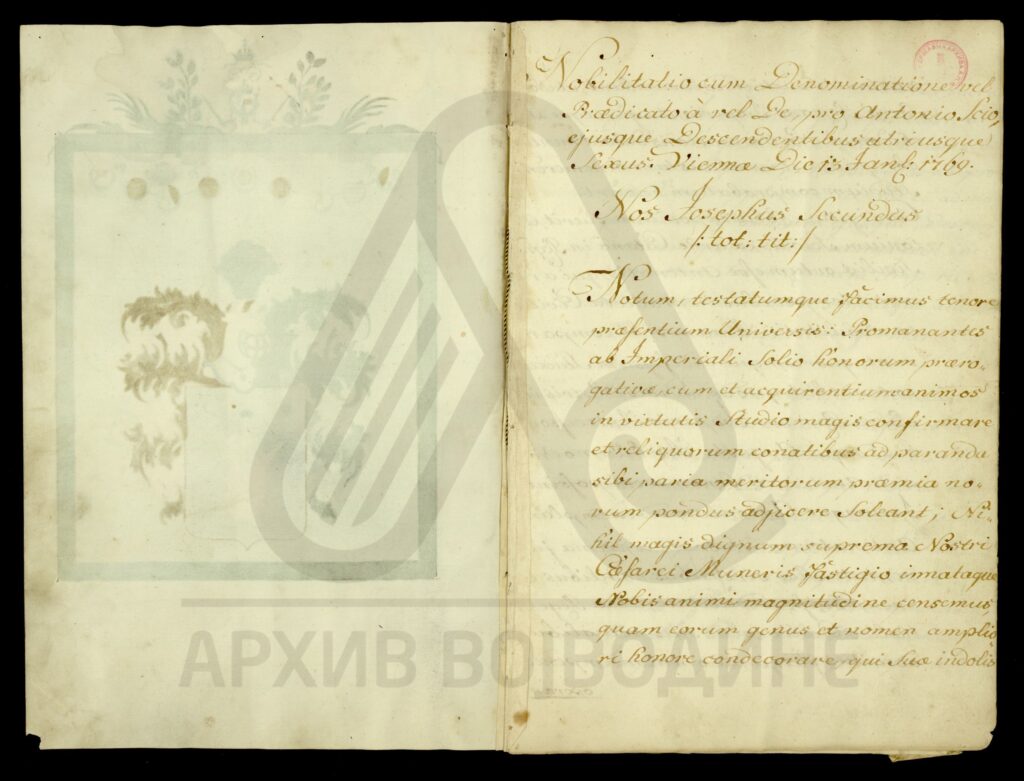 Nobilitatio cum Denominatione vel
Prædicato à vel De, pro Antonio Scio,
ejusque Descendentibus utriusque
Sexus. Viennæ Die 13 Jan: 1769.
Nos Josephus Secundus
/: tot: tit: /
Notum, testatumque facimus tenore
præsentium Universis: Promanantes
ab Imperiali Solio honorum præro-
gativæ, cum et acquirentium animos
in virtutis Studio magis confirmare
et reliquorum conatibus ad paranda
sibi paria meritorum præmia no-
vum pondus adjicere Soleant; Ni-
hil magis dignum supremo Nostri
Cæsarei Muneris fastigio innataque
Nobis animi magnitudine censemus,
quam eorum genus et nomen amplio-
ri honore condecorare, qui Suæ indolis
АРХИВ ВОЈВОДИНЕ